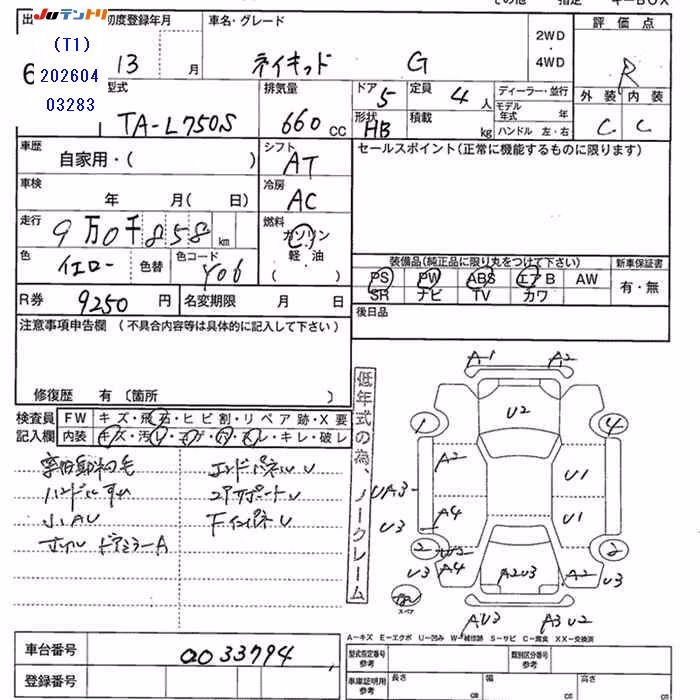 その他 指定 キーBOX
JUテントリ
(T1)
202604
03283
初度登録年月 車名・グレード 評価点
13 月 ネイキッド G 2WD・4WD R
型式 排気量 ドア 5 定員 4 人 ディーラー・並行 外装 内装
TA-L750S 660 CC 形状 HB 積載 kg モデル年式 年 C C
ハンドル 左・右
車歴 自家用・( ) シフト AT セールスポイント(正常に機能するものに限ります)
車検 年 月( 日) 冷房 AC
走行 9万0千858 km 燃料 ガソリン 軽油 ( )
色 イエロー 色替 色コード Y06
装備品(純正品に限り丸をつけて下さい) 新車保証書
PS PW ABS エアB AW 有・無
SR ナビ TV カワ
R券 9250 円 名変期限 月 日 後日品
注意事項申告欄 (不具合内容等は具体的に記入して下さい)
修復歴 有 〔箇所 〕
検査員 FW キズ・飛石・ヒビ割・リペア跡・X要
記入欄 内装 キズ・汚レ・コゲ・穴・スレ・キレ・破レ
エンドパネルU
コアサポートU
小AU
ドアミラーA
低年式の為、ノークレーム
A1 A2
U2
1 4
A2
UA3 U1
A4 U1
U3
2 2
U3 A4 A2U3 A2 U3
スペア
AU3 A3U2
A-キズ E-エクボ U-凹み W-補修跡 S-サビ C-腐食 XX-交換済
車台番号 0033794
型式指定番号 参考 類別区分番号 参考
登録番号
車庫証明用 参考 長さ cm 幅 cm 高さ cm